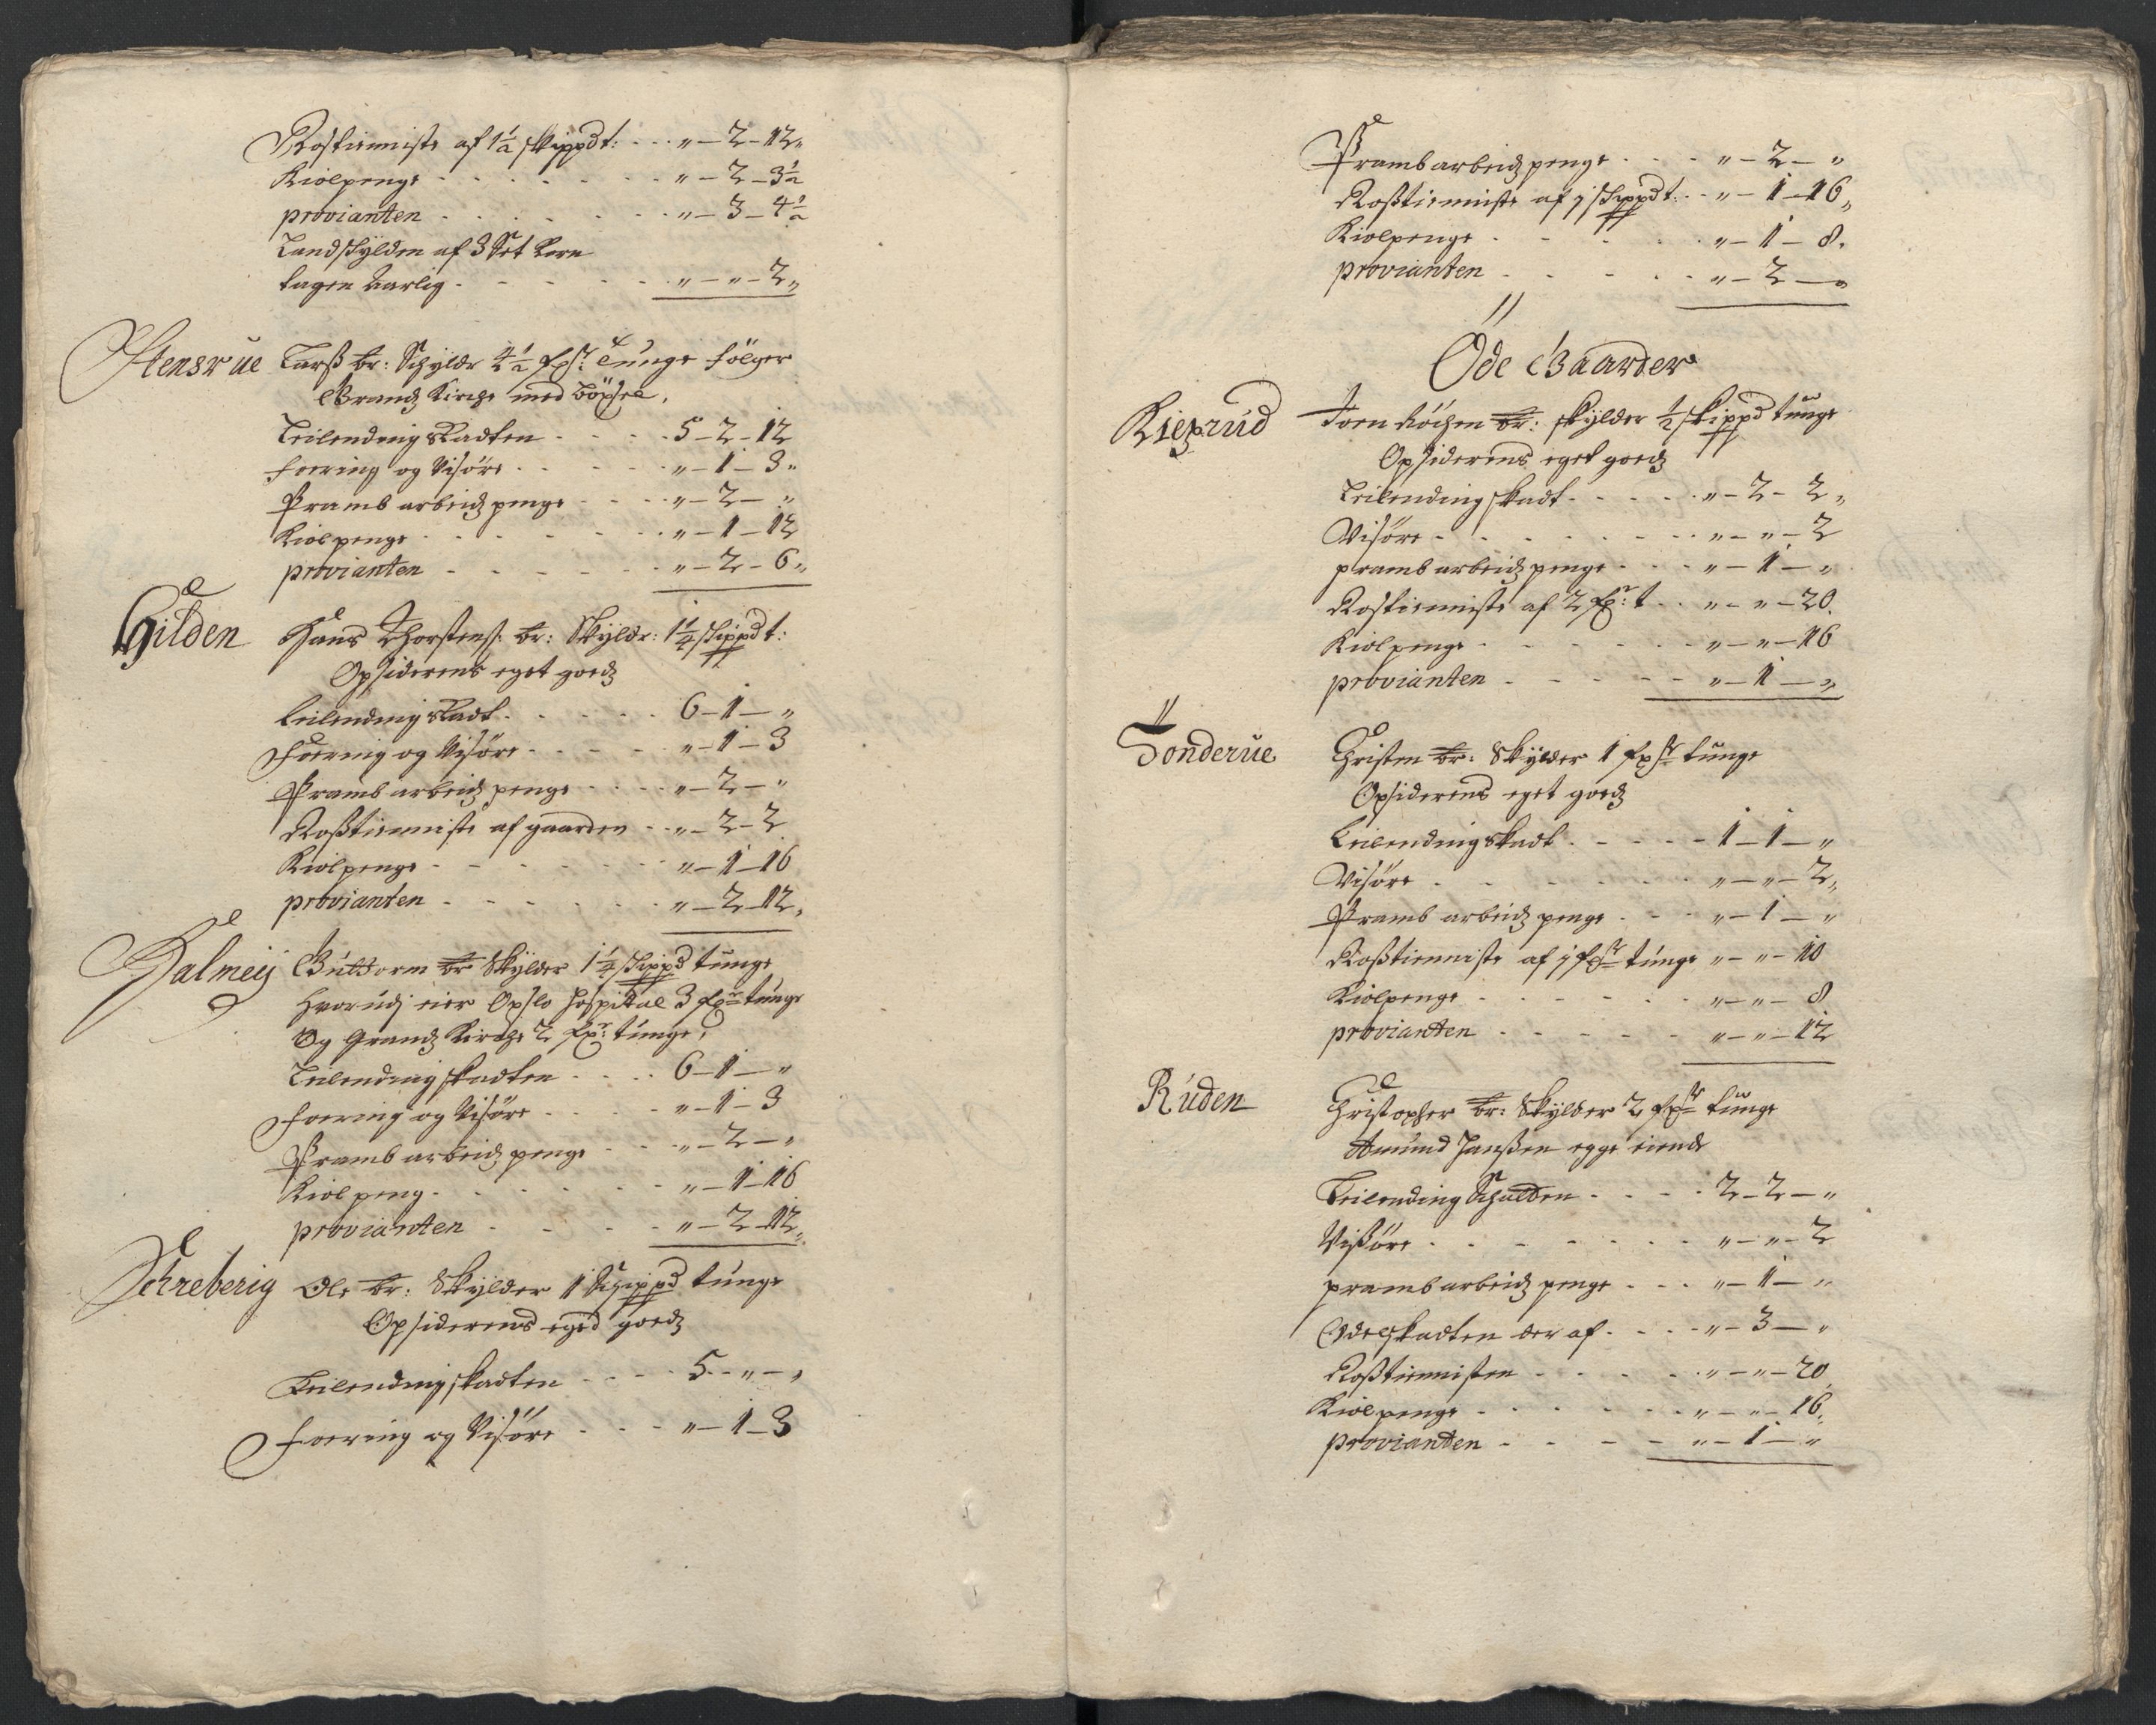 Rostienniste af 1½ skippdt: . . . „ – 2 – 12 „
Kiolpenge . . . . . . „ – 2 – 3½
provianten . . . . . . „ – 3 – 4½
Landskylden af 3 Set Korn
tagen aarlig . . . . . „ – „ – 2 „
Stensrue Larß br: Schylder 4½ fpdr: Tunge følger
Grandz Kirche med böxsel,
Leilending Skadten . . . . 5 – 2 – 12
foering og Visöre . . . . „ – 1 – 3 „
Pramb arbeidz penge . . . . „ – 2 – „
Kiolpenge . . . . . . „ – 1 – 12
provianten . . . . . . „ – 2 – 6 „
Gilden Hans Thorstens: br: Skylder: 1¼ skippdt:
Opsiderens eget goedz
Leilending Skadt . . . . . 6 – 1 – „
Foering og Visöre . . . . „ – 1 – 3
Pramb arbeidz penge . . . . „ – 2 – „
Roßtienniste af gaarden . . „ – 2 – 2
Kiolpenge . . . . . . „ – 1 – 16
provianten . . . . . . „ – 2 – 12 „
Halmeij Guldorm br Skylder 1¼ skippd tunge
hvorudj eier Opslo Hospital 3 fpdr tunge
Og Grandz Kirche 2 fpdr: tunge,
Leilending skadten . . . . 6 – 1 – „
Foering og Visöre . . . . „ – 1 – 3
Pramb arbeidz penge . . . „ – 2 – „
Kiol peng . . . . . . „ – 1 – 16
provianten . . . . . „ – 2 – 12 „
Schreberig Ole br: Skylder 1 Schippd tunge
Opsiderens eged goedz
Leilending skadten . . . . 5 – „ – „
Foering og Visöre . . . „ – 1 – 3
Pramb arbeidz penge . . . „ – 2 – „
Roßtienniste af j skippdt: . . „ – 1 – 16 „
Kiolpenge . . . . . „ – 1 – 8 „
provianten . . . . . „ – 2 – „
Öde Gaarder
Kiexrud br: skylder ½ skippd tunge
Opsiderens eget goedz
Leilending skadt . . . . . „ – 2 – 2 „
Visöre . . . . . . . „ – „ – 2
pramb arbeidz penge . . . „ – 1 – „
Rostienniste af 2 fpr: t . . „ – „ – 20
Kiolpenge . . . . . . „ – „ – 16
provianten . . . . . „ – 1 – „
Sonderue Christen br: Skylder 1 fpdr tunge
Opsiderens eget goedz
Leilending skadt . . . . . 1 – 1 – „
Visöre . . . . . . „ – „ – 2 „
Pramb arbeidz penge . . . „ – 1 – „
Roßtienniste af j fpdr tunge „ – „ – 10
Kiolpenge . . . . . . „ – „ – 8
provianten . . . . . . „ – „ – 12
Ruden Christopher br: Skylder 2 fpdr tunge
Amund Janßen egge eiende
Leilending Schalden . . . . 2 – 2 – „
Visöre . . . . . . . „ – „ – 2
pramb arbeidz penge . . . „ – 1 – „
Odelskadten der af . . . . „ – 3 – „
Roßtiennisten . . . . . „ – „ – 20
Kiolpenge . . . . . . „ – „ – 16 „
provianten . . . . „ – 1 – „